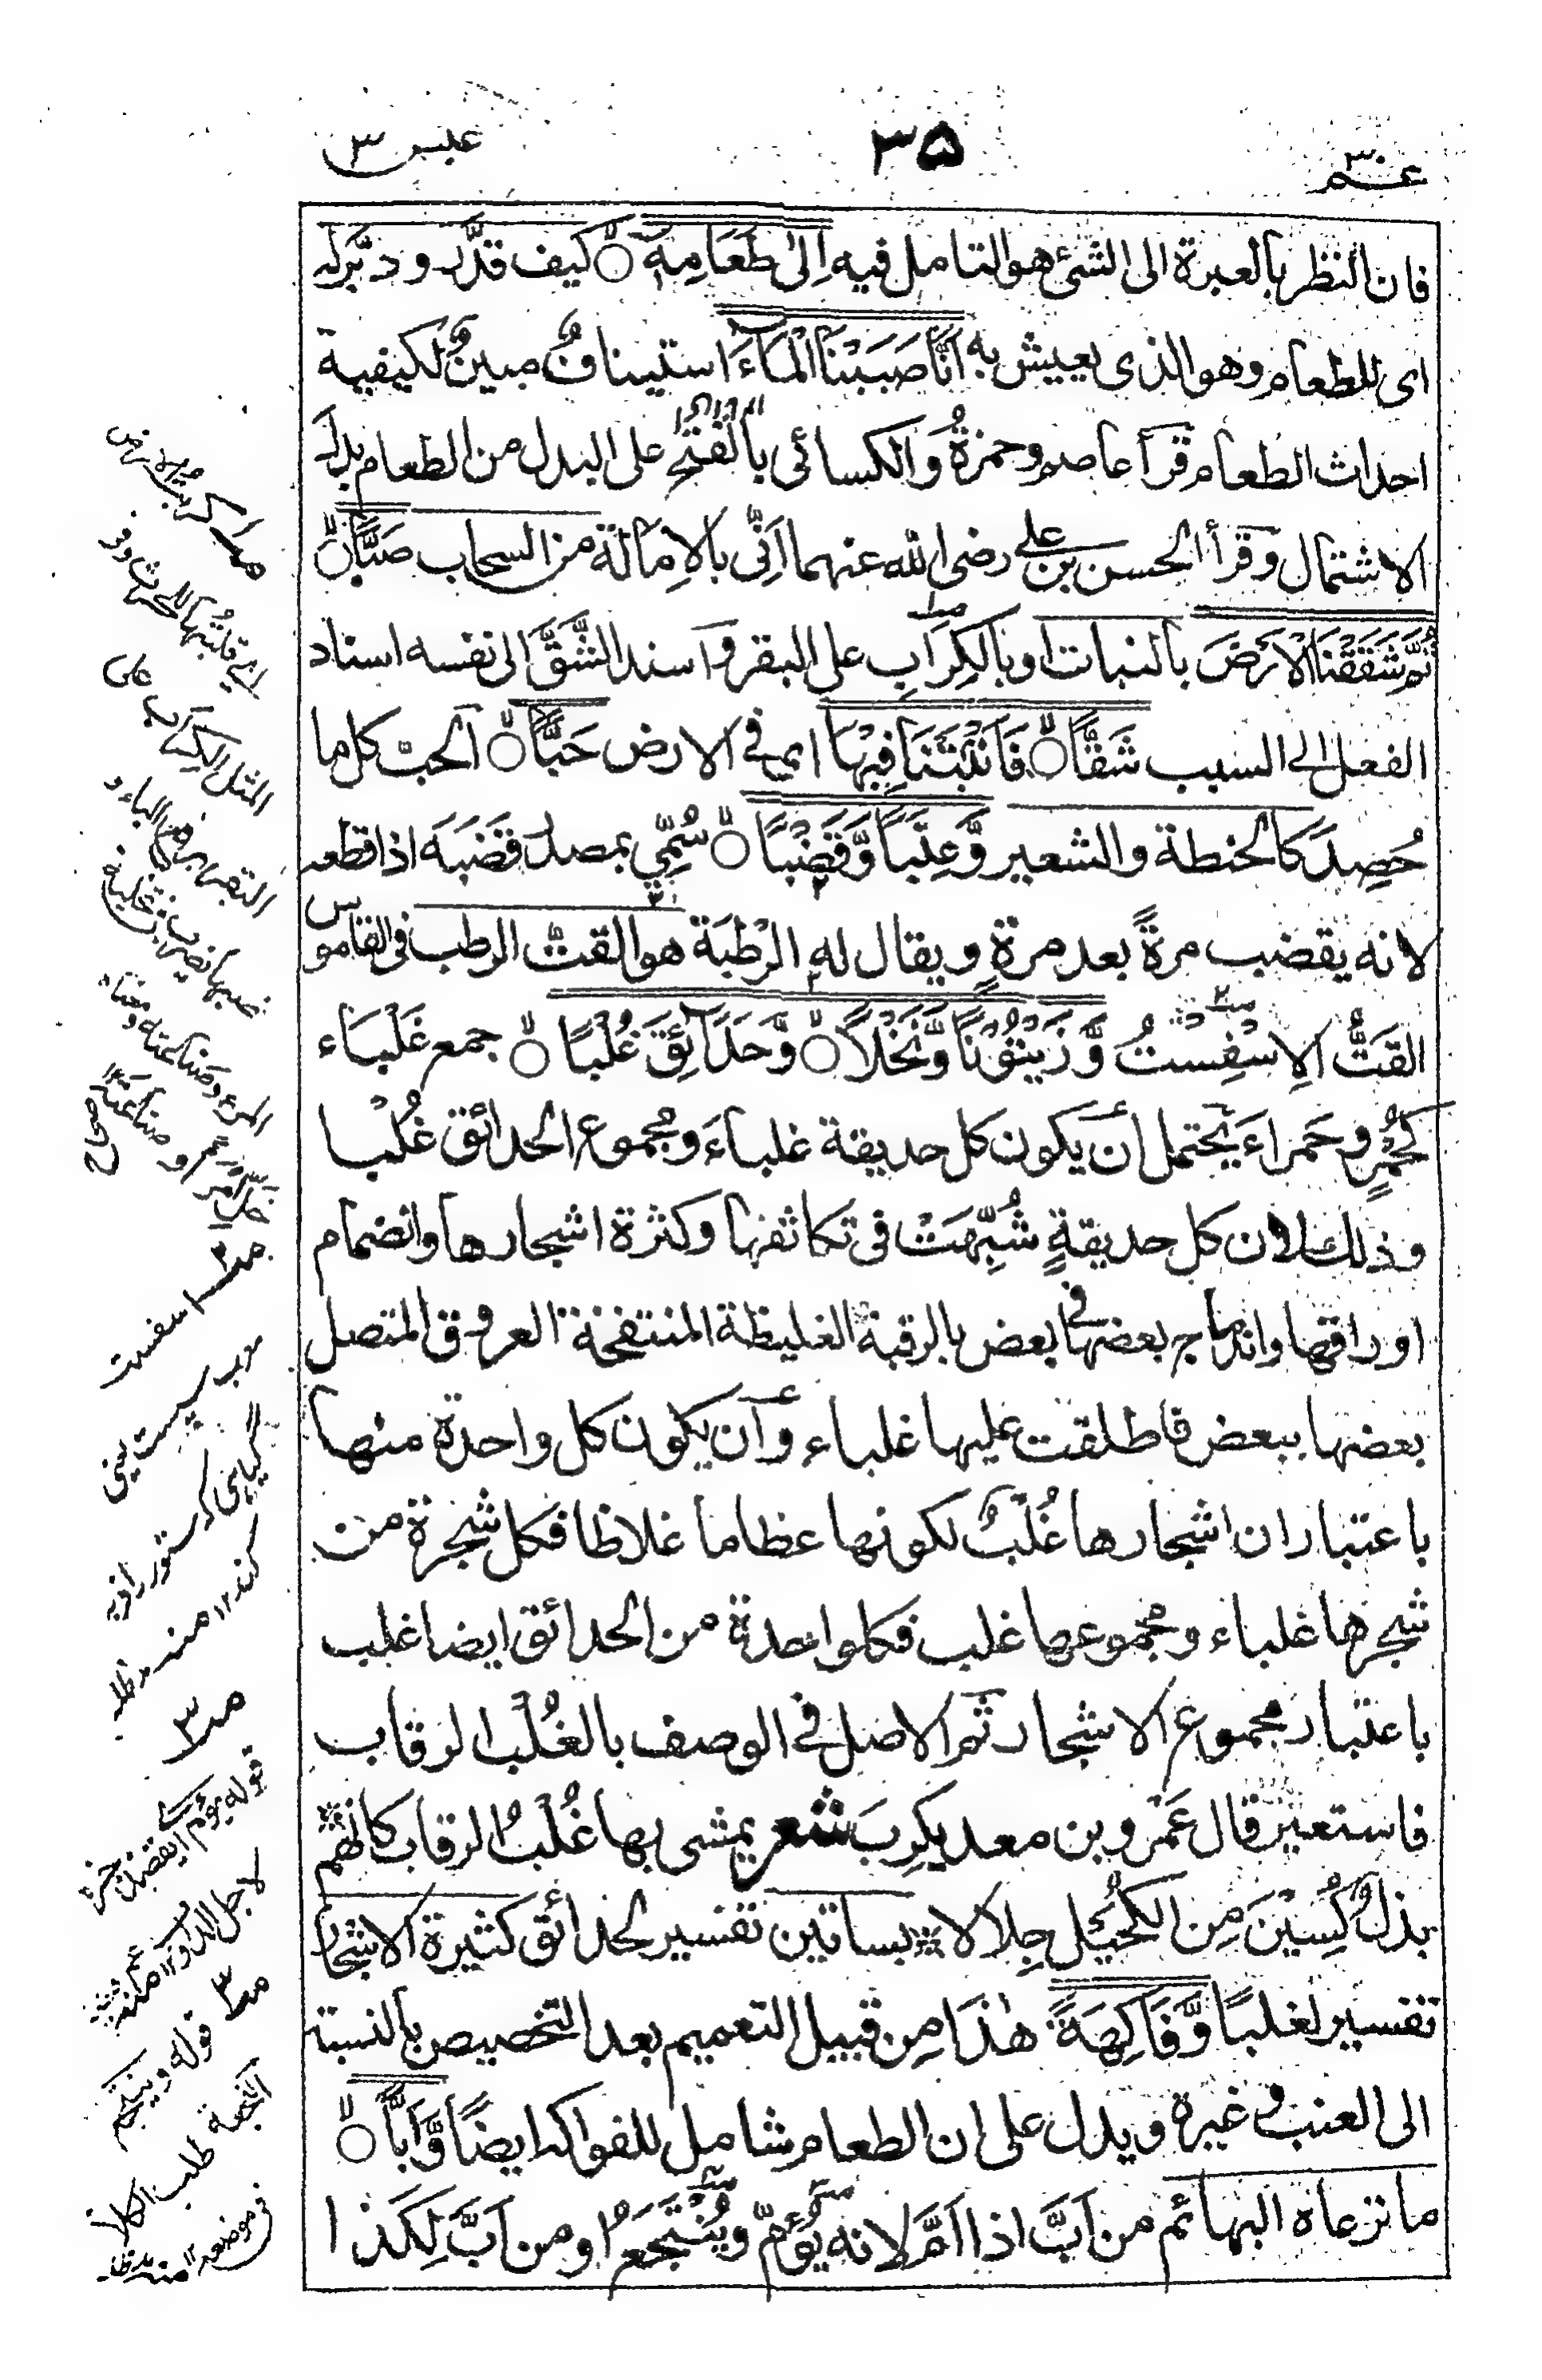 عم ٣٠
٣٥
عبس ٣
فان النظر بالعبرة الى الشئ هو التامل فيه اِلىٰ طَعَامِهٖ ۙ كيف قدَّر ودبَّر له
اى للطعام وهو الذى يعيش به اَنَّا صَبَبْنَا الْمَآءَ استيناف مبينٌ لكيفية
احداث الطعام قرأ عاصم وحمزةُ والكسائى بالفتح على البدل من الطعام بدل
الاشتمال وقرأ الحسن بن على رضى الله عنهما اَنّٰى بالاِمالة من السحاب صَبًّا ۙ
ثُمَّ شَقَقْنَا الْاَرْضَ بالنبات او بالكِرَابِ على البقر واسند الشَّقَّ الى نفسه اسناد
الفعل الى السبب شَقًّا ۙ فَاَنْۢبَتْنَا فِيْهَا اى فى الارض حَبًّا ۙ الحب كل ما
حُصِدَ كالحنطة والشعير وَّعِنَبًا وَّقَضْبًا ۙ سُمِّي بمصدر قَضَبَه اذا قطعه
لانه يقضب مرةً بعد مرةٍ ويقال له الرَطْبَة هو القتّ الرطب فى القاموس
القَتُّ الاِسْفِسْتُ وَّزَيْتُوْنًا وَّنَخْلًا ۙ وَّحَدَآئِقَ غُلْبًا ۙ جمع غَلْبَاء
كحُمْرٍ وحَمراءَ يحتمل أن يكون كل حديقة غلباءَ ومجموع الحدائق غُلْبا
وذلك لان كل حديقةٍ شُبِّهَتْ فى تكاثفها وكثرة اشجارها وانضمام
اوراقها واندماج بعضها فى بعض بالرقبة الغليظة المنتفخة العروق المتصل
بعضها ببعض فاطلقت عليها غلباء وأن يكون كل واحدة منها
باعتبار ان اشجارها غُلْبٌ لكونها عظاما غلاظا فكل شجرة من
شجرها غلباء ومجموعها غلب فكل واحدة من الحدائق ايضا غلب
باعتبار مجموع الاشجار ثم الاصل فى الوصف بالغُلْب الرقاب
فاستعير قال عَمْرو بن معديكرِبَ شعر يمشى بها غُلْبُ الرقاب كانهم
بذلٌ كُسِيْنَ مِن الكُحَيْل جِلالا بساتين تفسير لحدائق كثيرة الاشجار
تفسير لغلبًا وَّفَاكِهَةً هٰذَا مِن قبيل التعميم بعد التخصيص بالنسبة
الى العنب وغيره ويدل على ان الطعام شامل للفواكه ايضًا وَّاَبًّا ۙ
ما ترعاه البهائم من اَبَّ اذا اَمَّ لانه يُؤَمُّ ويُنْتَجَعُ او من اَبَّ لِكَذا
اسفست
گياهى كه ستور را فربه
كند ١٢ منه مدظله
لاجل الدواب ١٢ منه
قوله وينتجع
النجعة طلب الكلأ
فى موضعه ١٢ منه مدظله